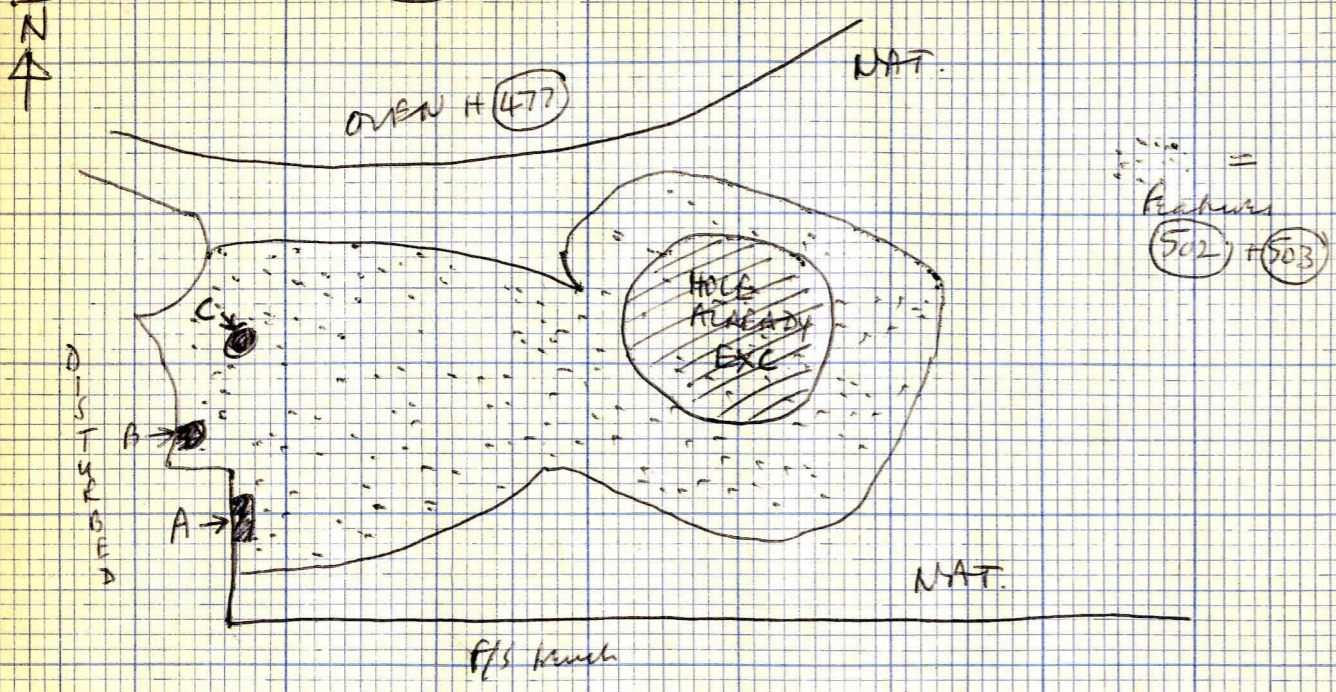 N
NAT.
OVEN H 477
=
Features
502 + 503
HOLE
ALREADY
EXC
C
DISTURBED
B
A
NAT.
F/S trench